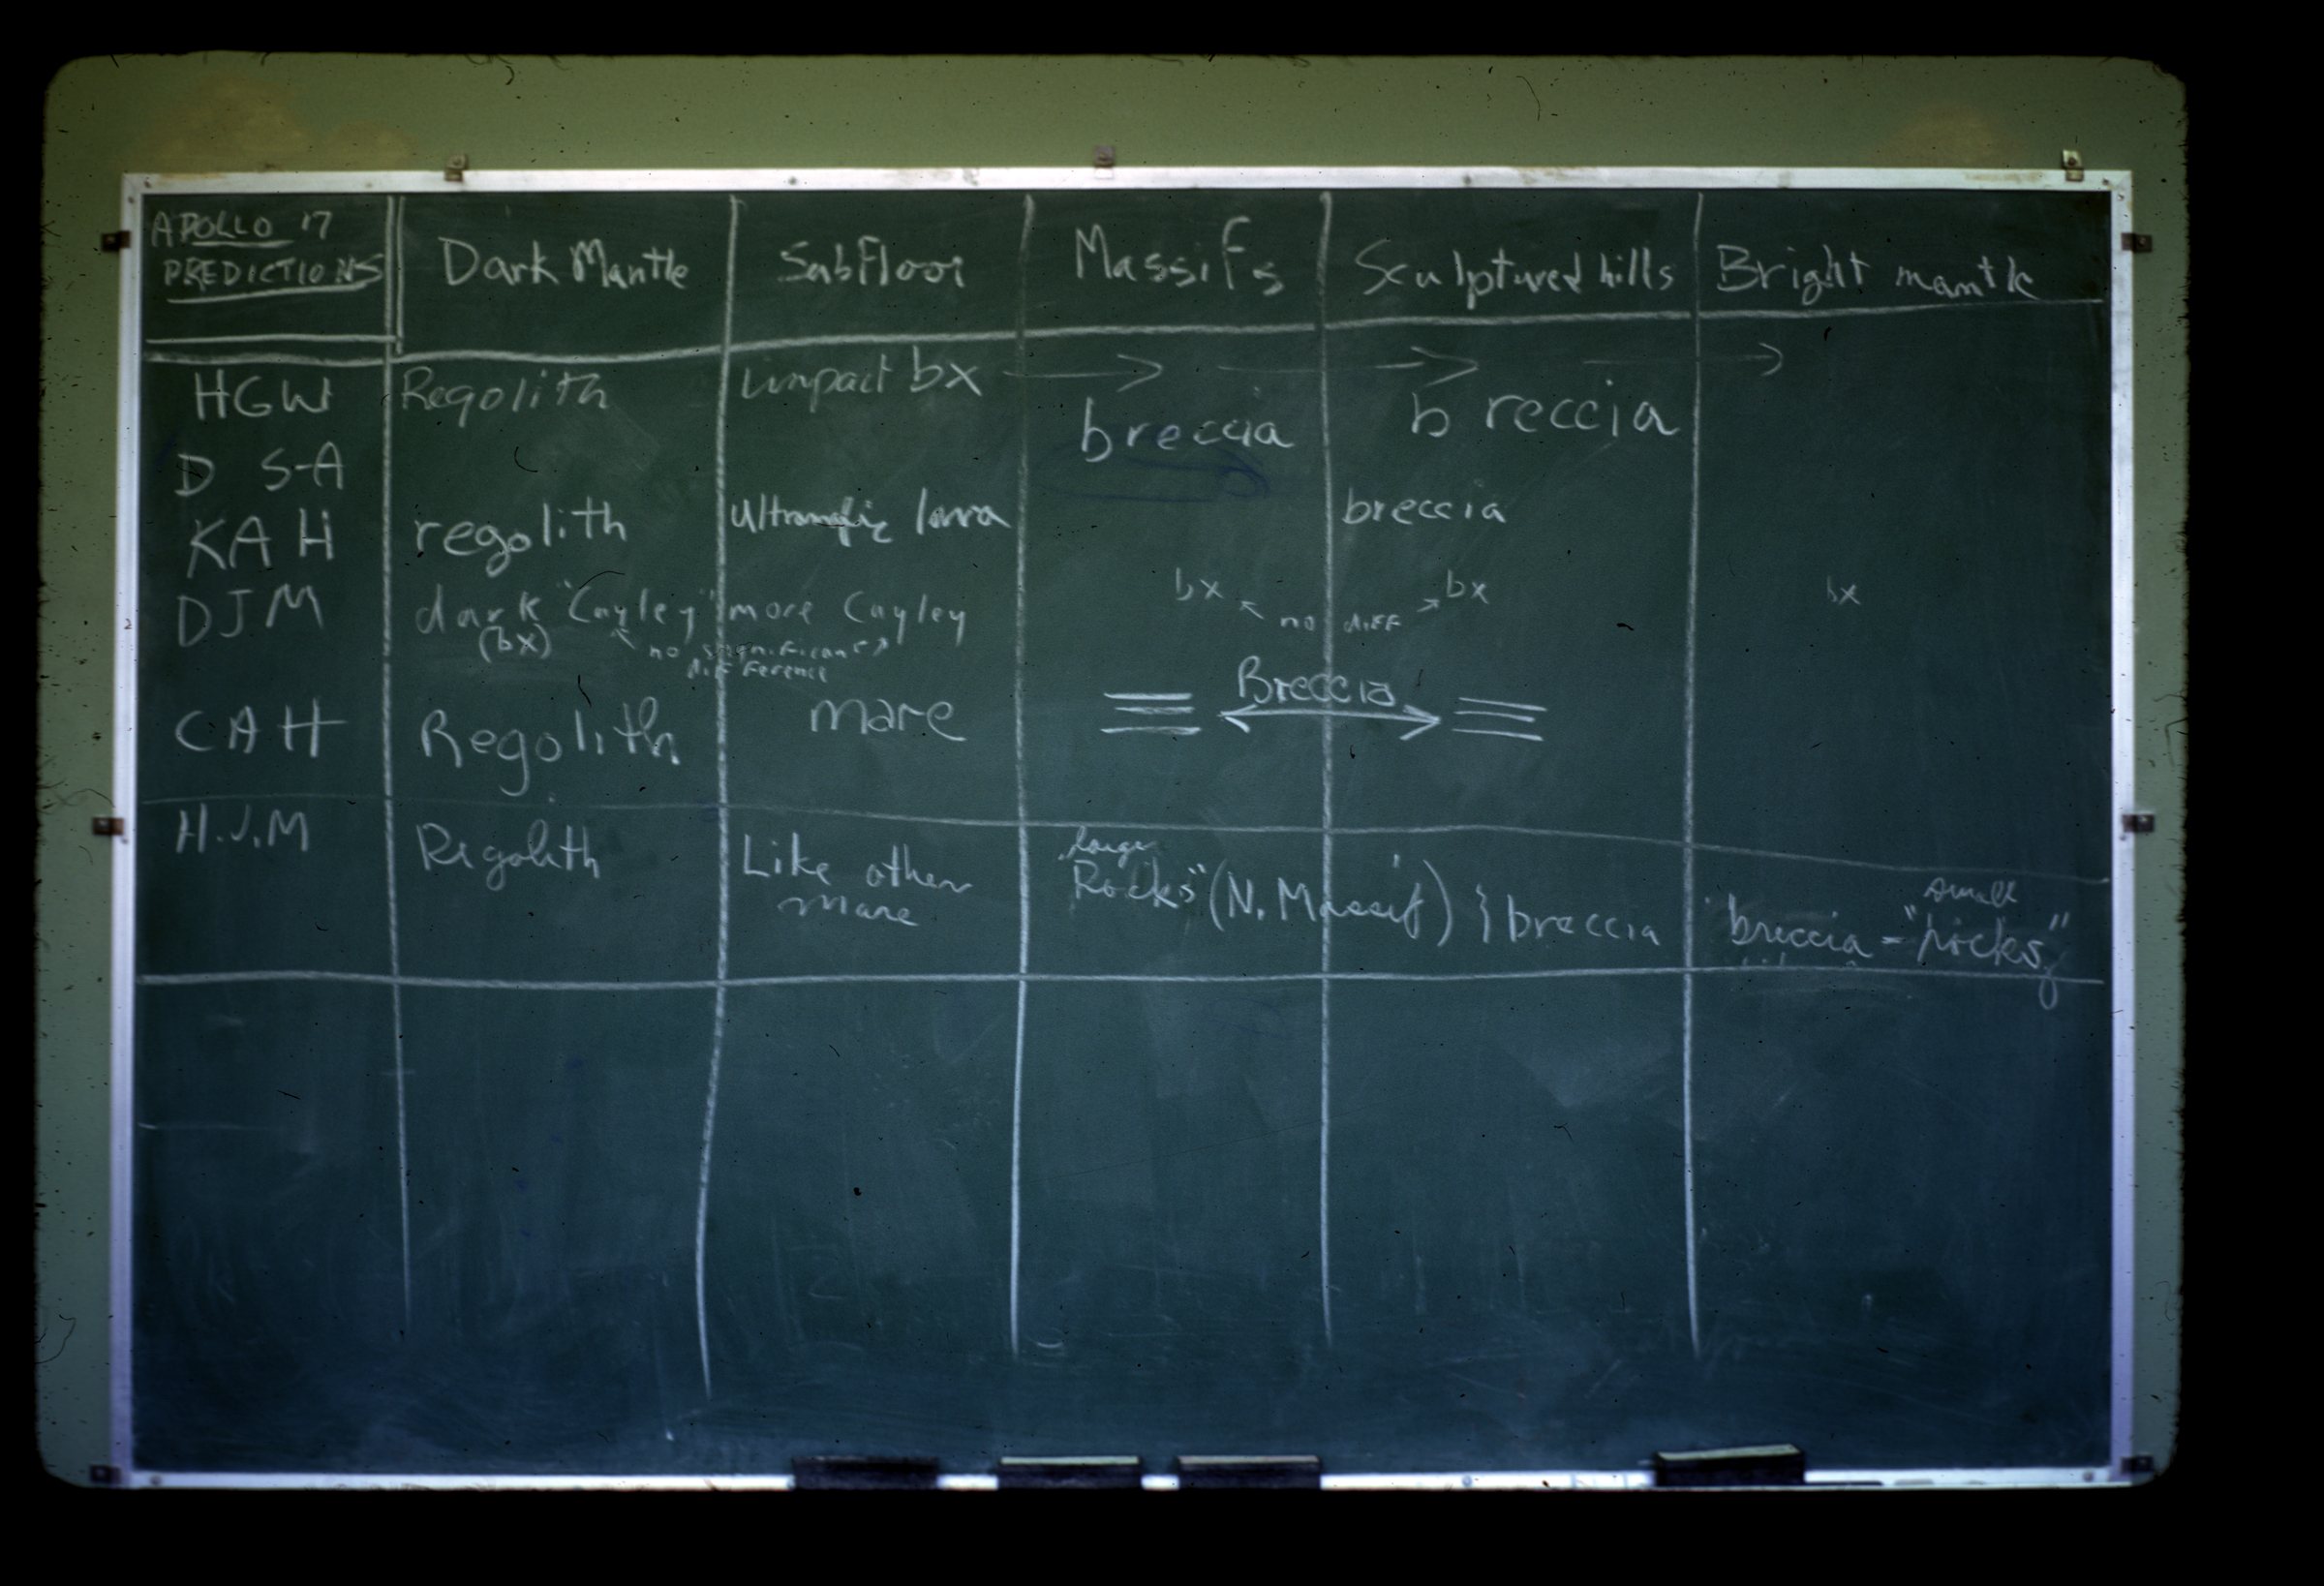 APOLLO 17
PREDICTIONS
Dark Mantle
SubFloor
Massifs
Sculptured hills
Bright mantle
HGW Regolith impact bx → → →
breccia breccia
D S-A
KAH regolith Ultramafic lava breccia
DJM dark "Cayley" more Cayley bx bx bx
(bx) no significant no diff
difference
CAH Regolith mare Breccia
H.J.M Regolith Like other
mare
larger
Rocks" (N. Massif) } breccia
small
breccia = "rocks"